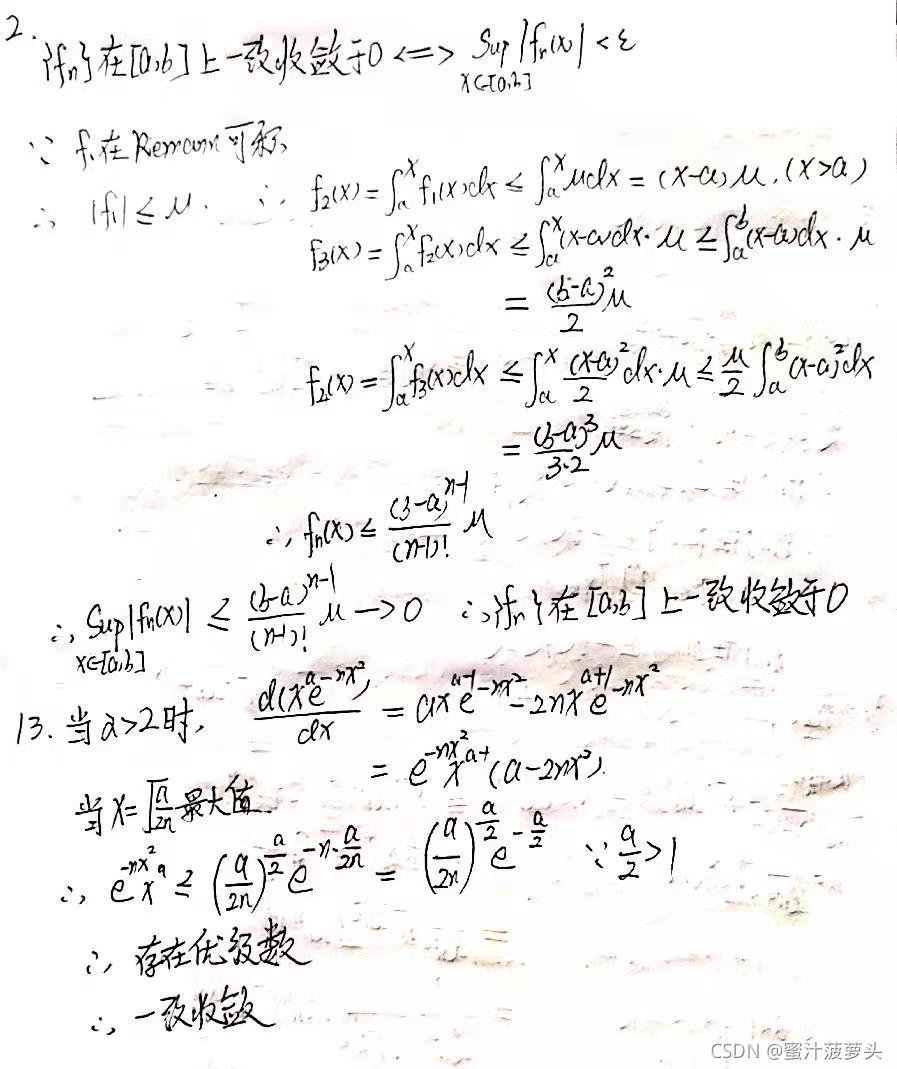 2.
{fₙ}在[a,b]上一致收敛于0 <=> Sup_{x∈[a,b]} |fₙ(x)| < ε
∵ f₁在Riemann可积
∴ |f₁| ≤ M. ∴ f₂(x) = ∫ₐˣ f₁(x)dx ≤ ∫ₐˣ Mdx = (x-a)M, (x>a)
f₃(x) = ∫ₐˣ f₂(x)dx ≤ ∫ₐˣ (x-a)dx·M ≤ ∫ₐᵇ (x-a)dx·M
= (b-a)²/2 M
f₂(x) = ∫ₐˣ f₃(x)dx ≤ ∫ₐˣ (x-a)²/2 dx·M ≤ M/2 ∫ₐᵇ (x-a)²dx
= (b-a)³/3·2 M
∴ fₙ(x) ≤ (b-a)ⁿ⁻¹/(n-1)! M
∴ Sup_{x∈[a,b]} |fₙ(x)| ≤ (b-a)ⁿ⁻¹/(n-1)! M → 0 ∴ {fₙ}在[a,b]上一致收敛于0
13. 当a>2时, d(x^a e^{-nx²})/dx = ax^{a-1}e^{-nx²} - 2nx^{a+1}e^{-nx²}
= e^{-nx²}x^{a-1}(a-2nx²).
当x=√(a/2n)最大值
∴ e^{-nx²}x^a ≤ (a/2n)^{a/2} e^{-n·a/2n} = (a/2n)^{a/2} e^{-a/2} ∵ a/2>1
∴ 存在优级数
∴ 一致收敛
CSDN @蜜汁菠萝头